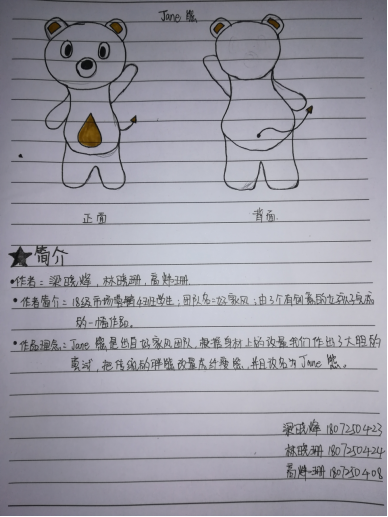 Jane 熊
正面
背面
★简介
•作者：梁晓辉，林晓珊，高炜珊.
•作者简介：18级市场营销4班学生；团队名：好家风；由3个有创意的女孩子完成
的一幅作品。
•作品理念：Jane熊是出自好家风团队，根据身材上的改量我们作出了大胆的
尝试，把传统的胖熊改量成纤瘦熊，并且改名为Jane熊。
梁晓辉 1807250423
林晓珊 1807250424
高炜珊 1807250408